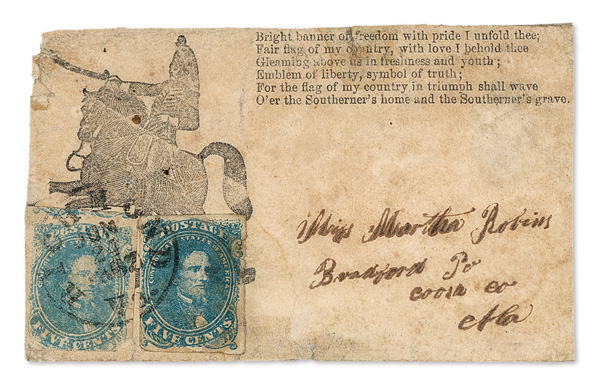 Bright banner of freedom with pride I unfold thee;
Fair flag of my country, with love I behold thee
Gleaming above us in freshness and youth;
Emblem of liberty, symbol of truth;
For the flag of my country in triumph shall wave
O'er the Southerner's home and the Southerner's grave.
Miss Martha Robins
Bradford Po
Coosa Co
Ala
POSTAGE
FIVE CENTS
POSTAGE
CONFEDERATE STATES
FIVE CENTS